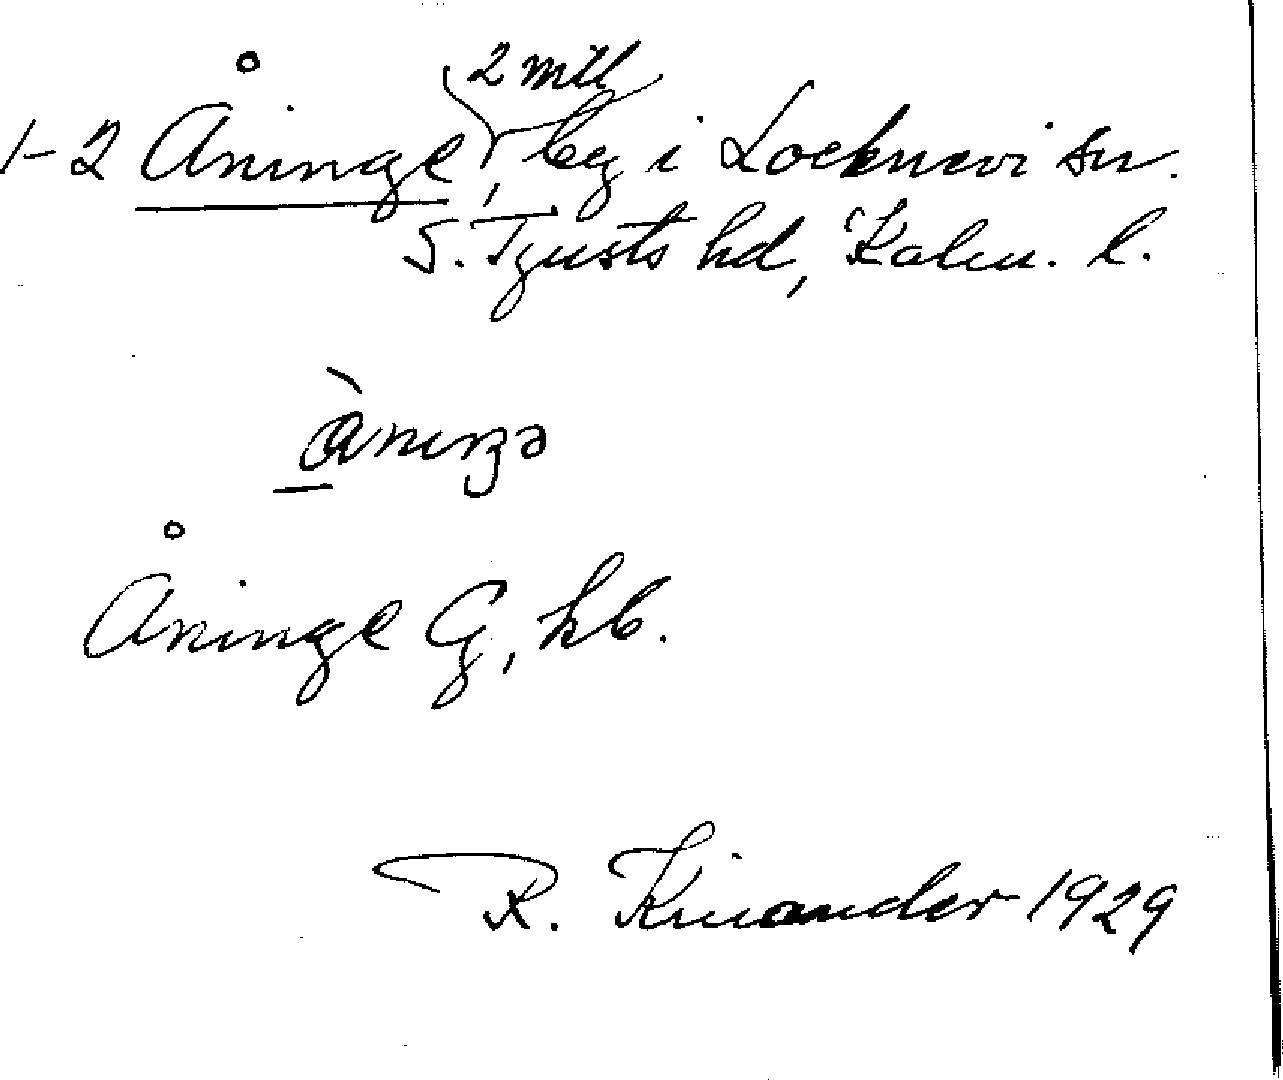 1-2 Åninge, 2 mtl, by i Locknevi sn.
S. Tjusts hd, Kalm. l.
Åninge G, hb.
R. Kinander 1929